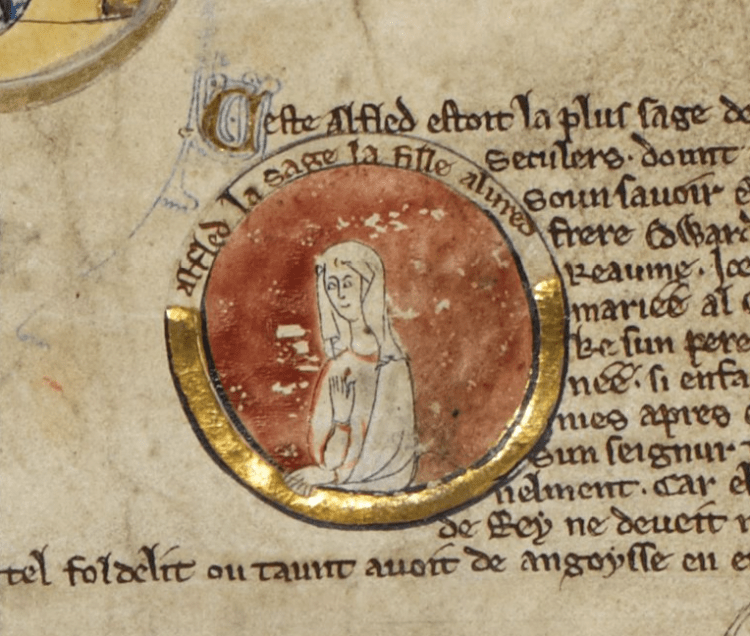 Ceste Alfled estoit la plus sage de
Alfled la sage la fille alured
seculers. dount
soun savoir e
frere Edward
Reaume. Ice
mariee al
ke sun pere
nee. si enfa
mies apres
sun seignur
nelment. Car el
de Rey ne deveit
tel foldelit ou taunt avoit de angoysse en e